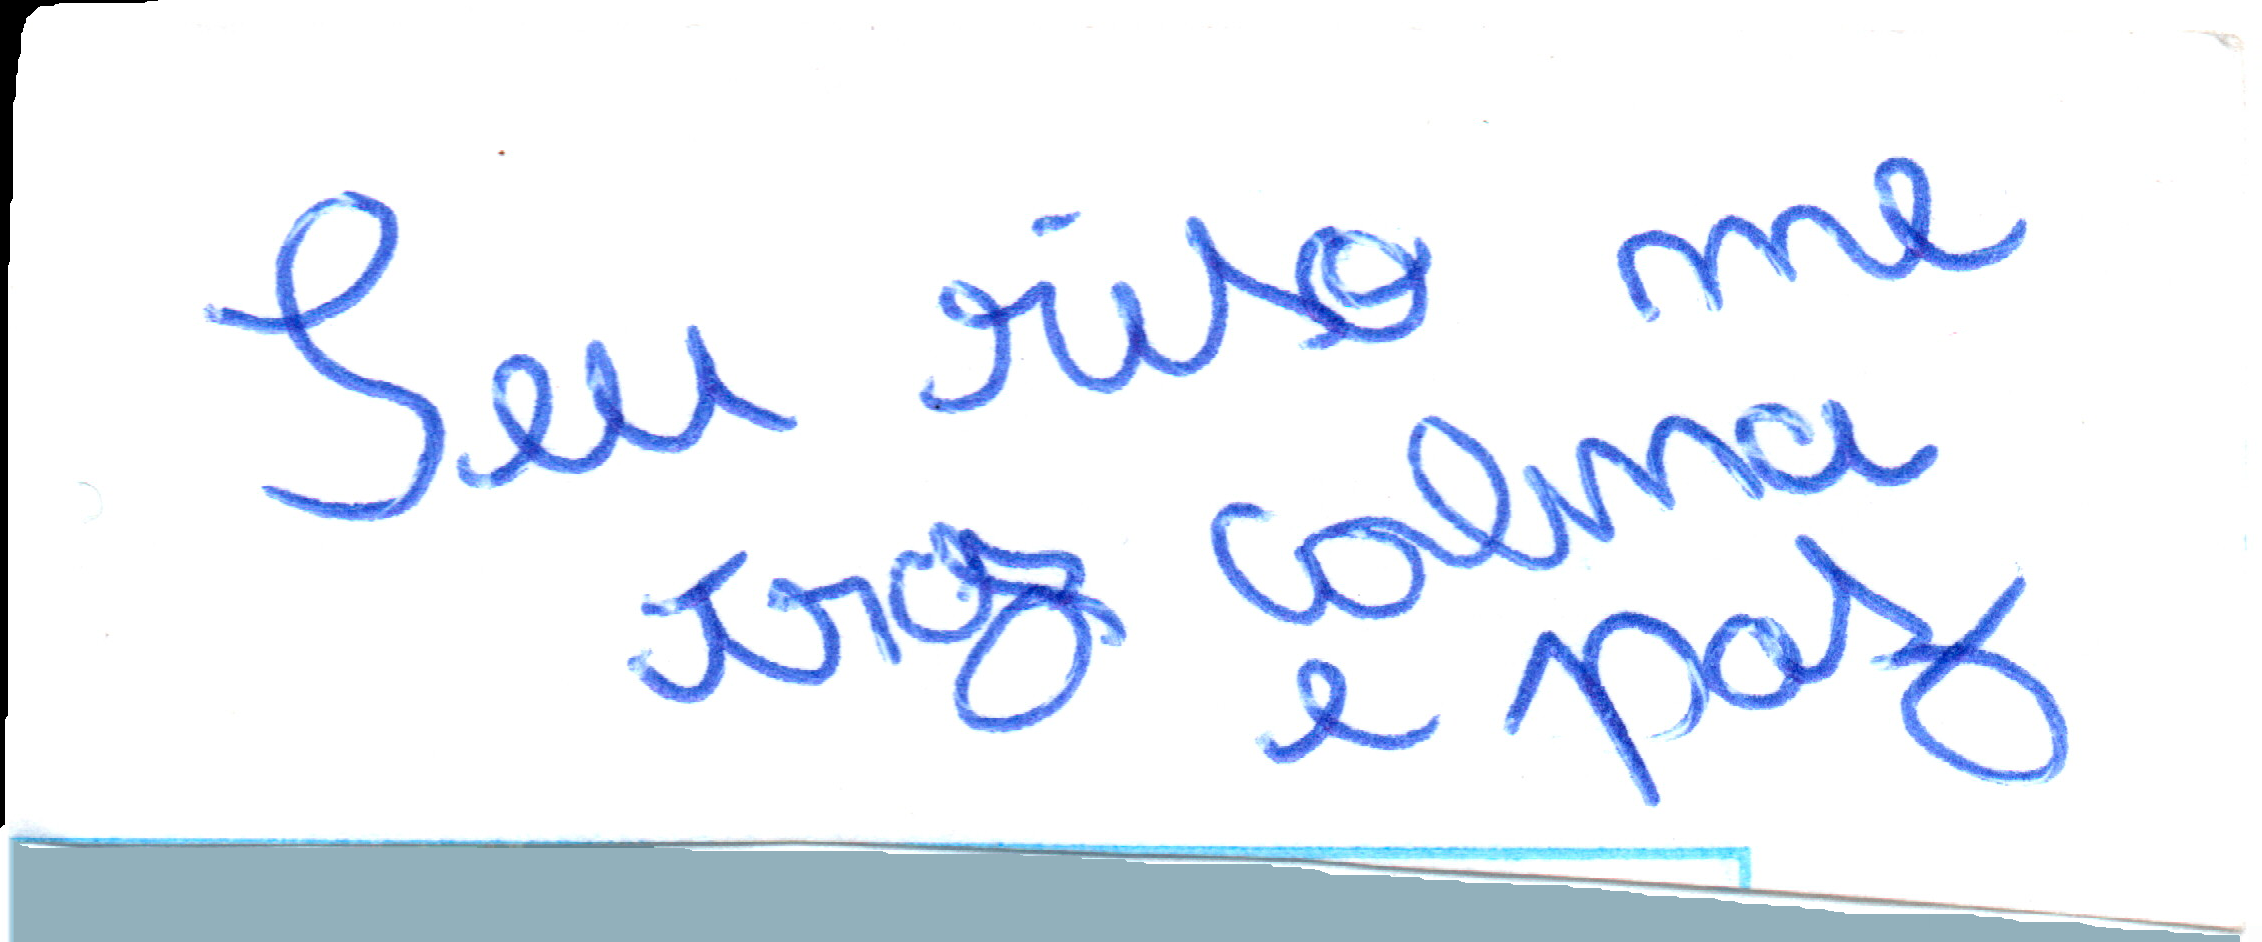 Seu riso me
traz calma
e paz